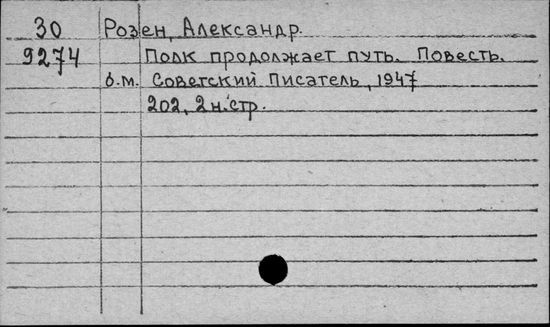 30 Розен, Александр.
9274 Полк продолжает путь. Повесть.
б.м. Советский Писатель, 1947
202, 2 н. стр.